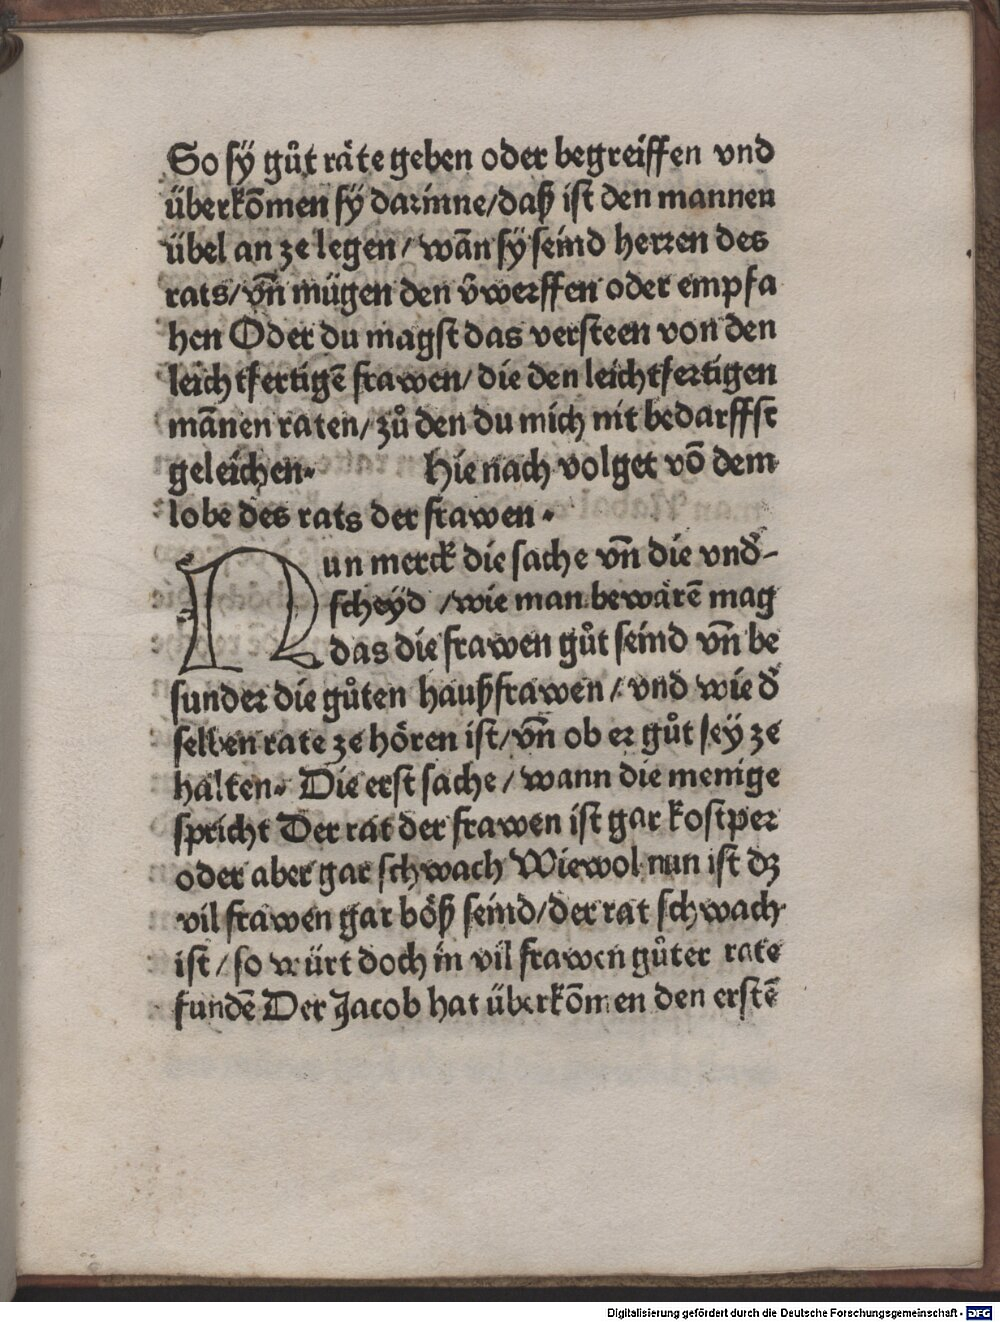 So sÿ gůt räte geben oder begreiffen vnd
überkōmen sÿ darinne/daß ist den mannen
übel an ze legen/ wān sÿ seind herren des
rats/ vn̄ mügen den v̄werffen oder empfa
hen Oder du magst das versteen von den
leichtfertigē frawen/ die den leichtfertigen
mānen raten/ zů den du mich nit bedarffst
geleichen. Hie nach volget vō dem
lobe des rats der frawen.
Nun merck die sache vn̄ die vnd̓-
scheÿd /wie man bewärē mag
das die frawen gůt seind vn̄ be
sunder die gůten haußfrawen/ vnd wie d̓
selben rate ze hören ist/ vn̄ ob er gůt seÿ ze
halten. Die erst sache/ wann die menige
spricht Der rat der frawen ist gar kostper
oder aber gar schwach Wiewol nun ist dʒ
vil frawen gar böß seind/der rat schwach
ist/ so würt doch in vil frawen gůter rate
fundē Der Jacob hat überkōmen den erstē
Digitalisierung gefördert durch die Deutsche Forschungsgemeinschaft - DFG